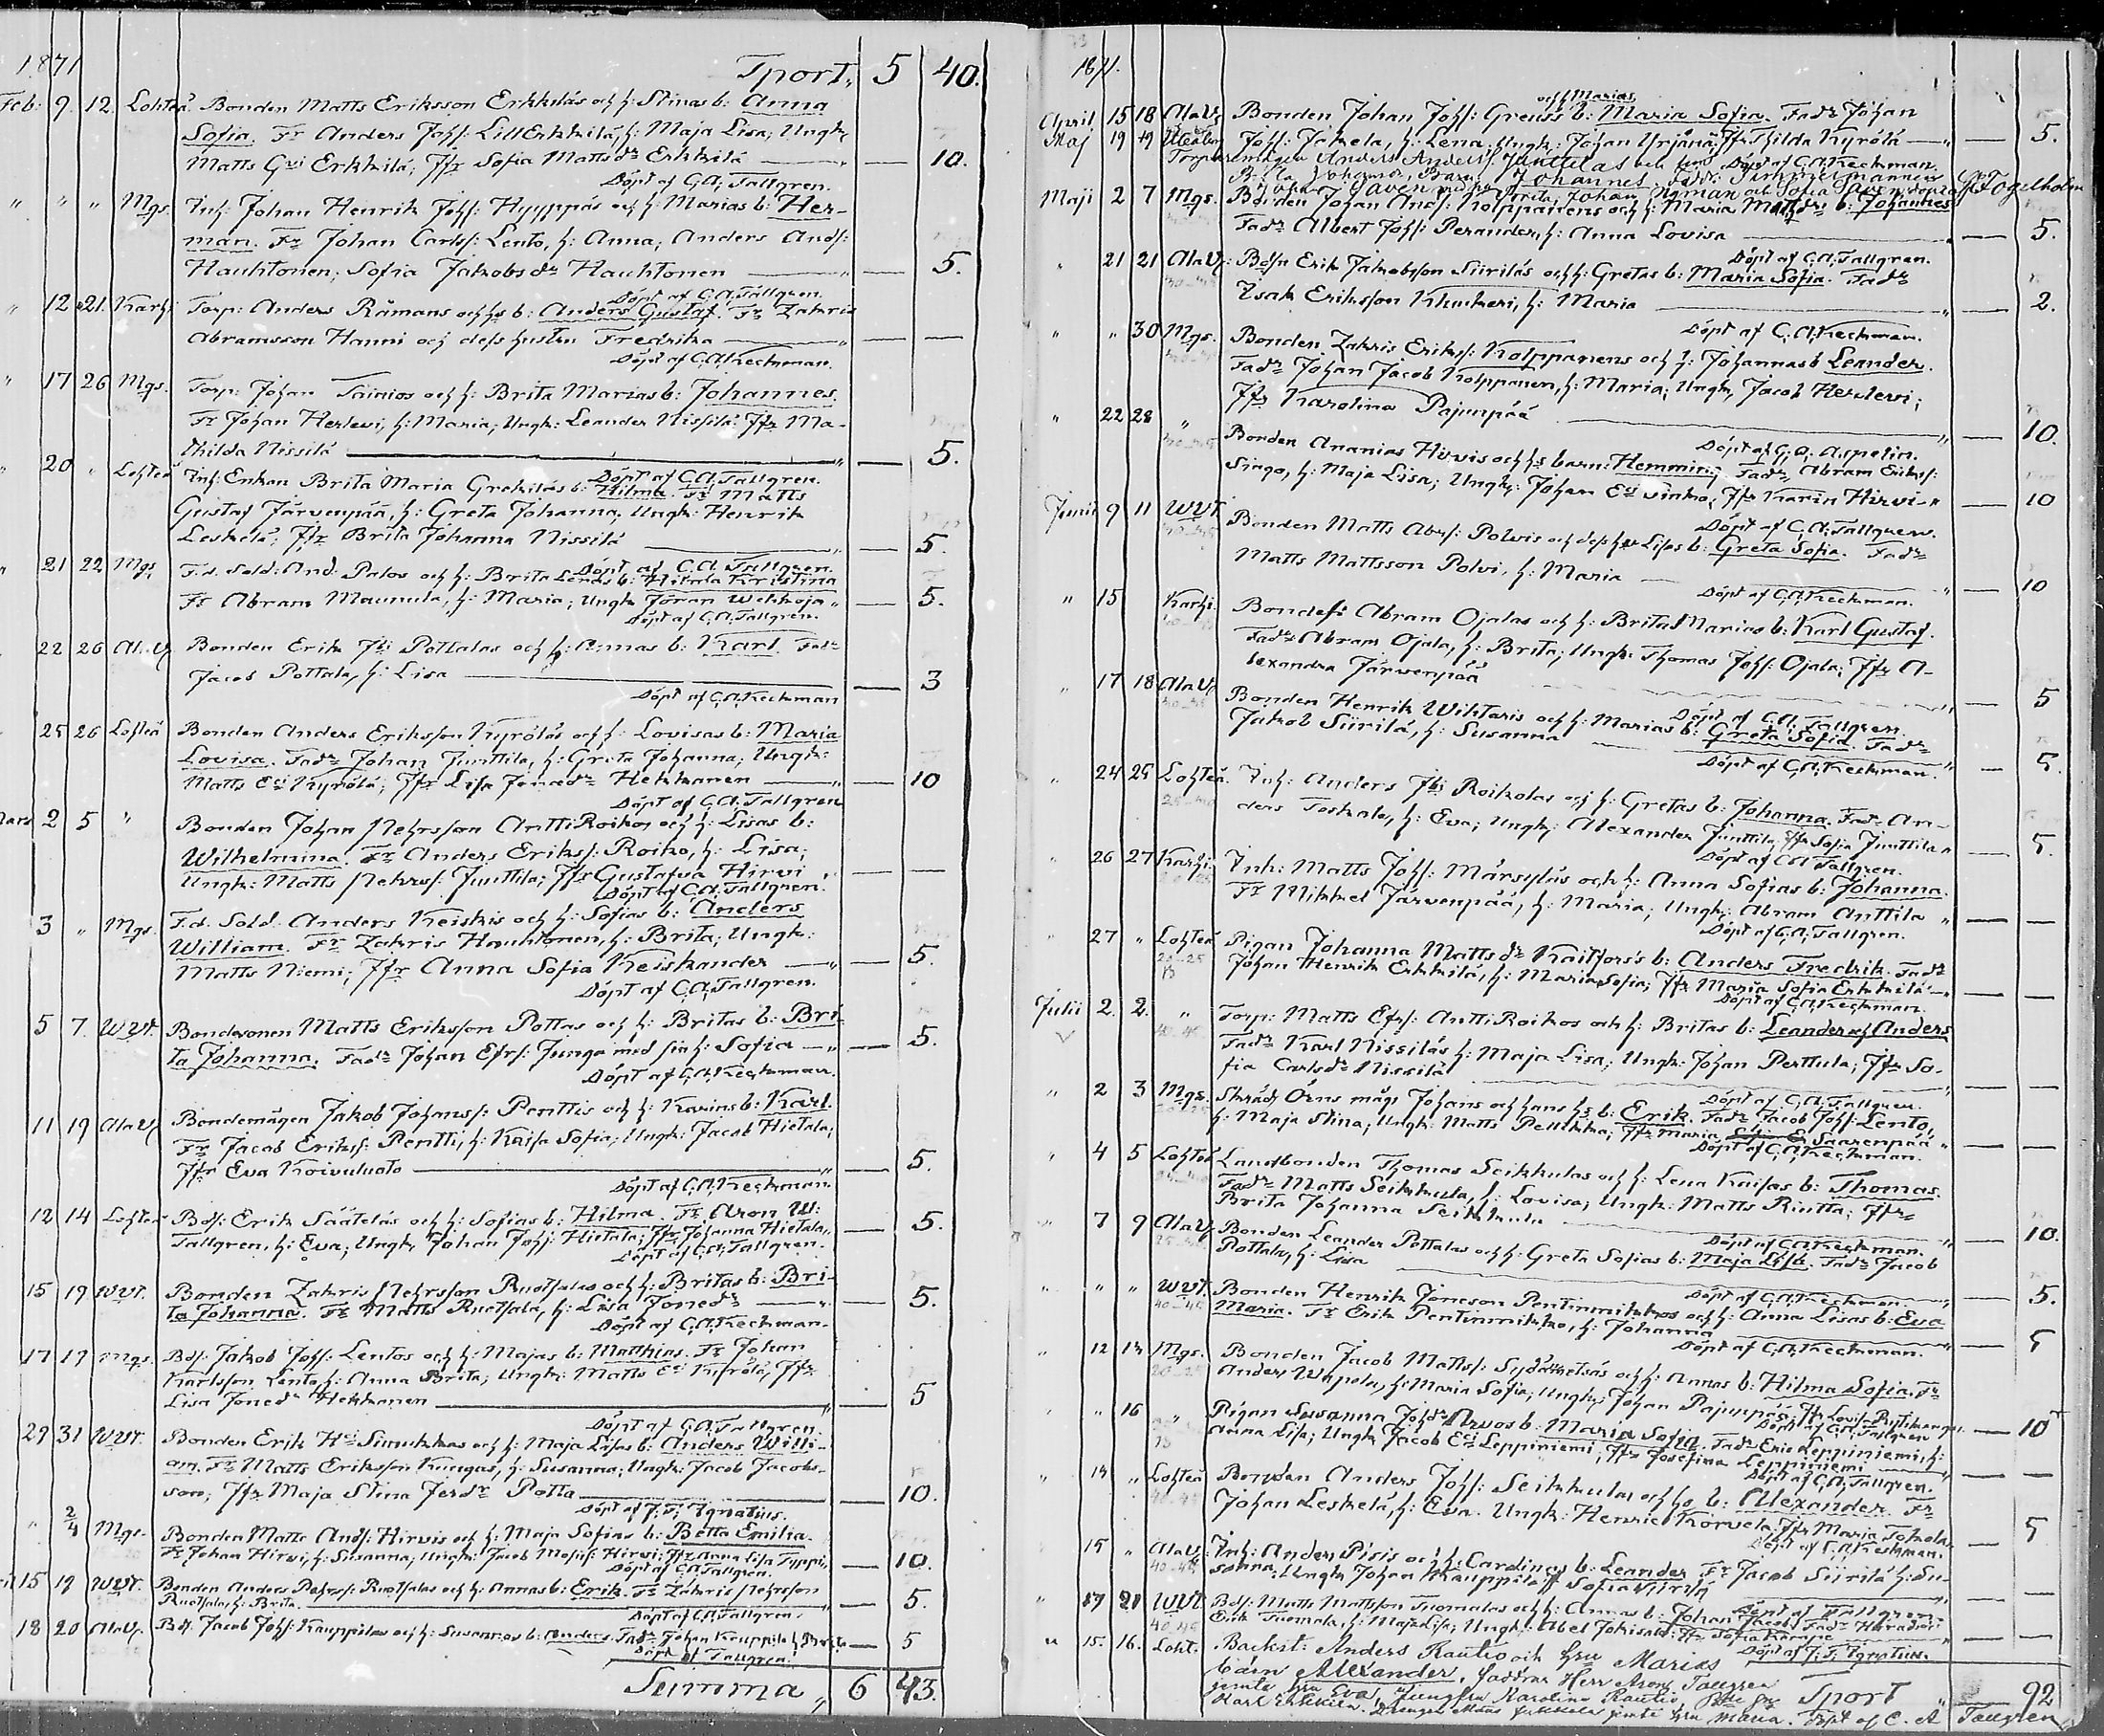 1871
Tport. 5 40.
Feb: 9. 12. Lohteå. Bonden Matts Eriksson Erkkiläs och h: Stinas b: Anna
Sofia. Fr Anders Johs: LillErkkilä, h: Maja Lisa; Ungk.
Matts Gsi Erkkilä; Jfr Sofia Mattsdr Erkkilä — 10.
Döpt af C.A. Tallgren.
" " " Mgs. Inh: Johan Henrik Johs: Hyyppäs och h: Marias b: Her-
man. Fr Johan Carlss: Lento, h: Anna; Anders Ands:
Hauhtonen; Sofia Jakobsdr Hauhtonen — 5.
Döpt af C.A. Tallgren.
" 12 21. Karhi Torp: Anders Råmans och hs b: Anders Gustaf. Fr Zakris
Abramsson Hanni och dess hustru Fredrika — —
Döpt af C.A. Keckman.
" 17 26 Mgs. Torp: Johan Tainios och h: Brita Marias b: Johannes.
Fr Johan Herlevi, h: Maria; Ungk: Leander Nissilä: Jfr Ma-
thilda Nissilä — 5.
Döpt af C.A. Tallgren.
" 20 " Lohteå Inh: Enkan Brita Maria Grekiläs b: Hilma. Fr Matts
Gustaf Järvenpää, h: Greta Johanna; Ungk: Henrik
Leskelä; Jfr Brita Johanna Nissilä — 5.
Döpt af C.A. Tallgren.
" 21 22 Mgs. F.d. Sold: And: Palos och h: Brita Lenas b: Hilma Kristina
Fr Abram Maunula, h: Maria; Ungk Johan Wetkoja — 5.
Döpt af C.A. Tallgren.
22 26 Ala V. Bonden Erik Pottalas och h: Annas b: Karl. Fadr
Jacob Pottala, h: Lisa — 3
Döpt af C.A. Keckman
25 26 Lohteå Bonden Anders Eriksson Kyröläs och h: Lovisas b: Maria
Lovisa. Fadr Johan Junttila, h: Greta Johanna; Ungk:
Matts Esi Kyrölä; Jfr Lisa Jonaedr Hekkanen — 10
Döpt af C.A. Tallgren
Mars 2 5 " Bonden Johan Pehrsson AnttiRoikos och h: Lisas b:
Wilhelmina. Fr Anders Erikss: Roiko, h: Lisa;
Ungk: Matts Pehrss: Junttila; Jfr Gustafva Hirvi — —
Döpt af C.A. Tallgren.
3 " Mgs. F.d. Sold: Anders Keiskis och h: Sofias b: Anders
William. Fr Zakris Hauhtonen, h: Brita; Ungk:
Matts Niemi; Jfr Anna Sofia Keiskander — 5.
Döpt af C.A. Tallgren.
5 7. Wvt. Bondesonen Matts Eriksson Pottas och h: Britas b: Bri-
ta Johanna. Fadr Johan Efrs: Junga med sin h: Sofia — 5.
Döpt af C.A. Keckman.
11 19 Ala V. Bondemågen Jakob Johanss: Penttis och h: Karins b: Karl.
Fr Jacob Erikss: Pentti, h: Kaisa Sofia; Ungk: Jacob Hietala;
Jfr Eva Koivuluoto — 5.
Döpt af C.A. Keckman.
12 14 Lohteå Bds: Erik Sääteläs och h: Sofias b: Hilma. Fr Aron W:
Tallgren, h: Eva; Ungk. Johan Johs: Hietala; Jfr Johanna Hietala — 5.
Döpt af C.A. Tallgren.
15 19 Wvt. Bonden Zakris Pehrsson Ruotsalas och h: Britas b: Bri-
ta Johanna. Fr Matts Ruotsala, h: Lisa Jonedr — 5.
Döpt af C.A. Keckman.
17 19 Mgs. Bds: Jakob Johs: Lentos och h: Majas b: Matthias. Fr Johan
Karlsson Lento, h: Anna Brita; Ungk: Matts Esi Kyrölä; Jfr
Lisa Jonedr Hekkanen — 5
Döpt af C.A. Tallgren.
29 31 Wvt. Bonden Erik Hsi Simukkas och h: Maja Lisas b: Anders Willi-
am. Fr Matts Eriksson Kungas, h: Susanna; Ungk: Jacob Jacobs-
son; Jfr Maja Stina Ferdr Potta — 10.
Döpt af J.F. Ignatius.
" 2/4 Mgs. Bonden Matts Ands: Hirvis och h: Maja Sofias b: Betta Emilia.
Fr Johan Hirvi, h: Susanna; Ungk: Jacob Hirvi; Jfr Anna Lisa Typpi — 10.
Döpt af C.A. Tallgren.
15 19 Wvt. Bonden Anders Pehrss: Ruotsalas och h: Annas b: Erik. Fr Zakris Pehrsson
Ruotsala, h: Brita. — 5.
Döpt af C.A. Tallgren.
18 20 Ala V. Bds. Jacob Johs: Kauppilas och h: Susannas b: Anders. Fadr Johan Kauppila h: Brita — 5
Döpt af Tallgren.
Summa 6 43.
1871.
April 15 18 Ala V. Bonden Johan Johs: Greuss och h Marias b: Maria Sofia. Fadr Johan
Johs: Jokela, h: Lena; Ungk: Johan Yrjänä; Jfr Hilda Kyrölä — 5.
Döpt af C.A. Keckman.
Maj 19 19 Uleåborg Torparemågen Anders Anderss. Junttilas och hus
Brita Johannas Barn: Johannes, Faddr: Timmermannen
Johan Saven med h: Brita, Johan Nyman och Sofia Saven G. Fogelholm
Maji 2 7 Mgs. Bonden Johan Ands: Kolppanens och h: Maria Mattsdrs b: Johannes
Fadr Albert Johs: Perander, h: Anna Lovisa — 5.
Döpt af C.A. Tallgren.
" 21 21 Ala V. Bdsn Erik Jakobsson Siiriläs och h: Gretas b: Maria Sofia. Fadr
Isak Eriksson Klukeri, h: Maria — 2.
Döpt af C.A. Keckman.
" " 30 Mgs. Bonden Zakris Erikss: Kolppanens och h: Johannas b Leander.
Fadr Johan Jacob Kolppanen, h: Maria; Ungk. Jacob Herlevi;
Jfr Karolina Pajunpää — 10.
Döpt af G.A. Aspelin.
" 22 28 " Bonden Ananias Hirvis och hs barn: Hemming Fadr Abram Erikss:
Singo, h: Maja Lisa; Ungk: Johan Esi Vinka; Jfr Karin Hirvi — 10
Döpt af C.A. Tallgren.
Junii 9 11 Wvt. Bonden Matts Abrs: Polvis och dess hu Lisas b: Greta Sofia. Fadr
Matts Mattsson Polvi, h: Maria — 10
Döpt af C.A. Keckman.
" 15 Karhi. Bondes: Abram Ojalas och h: Brita Marias b: Karl Gustaf.
Fadr Abram Ojala, h: Brita; Ungk: Thomas Johs: Ojala; Jfr A-
lexandra Järvenpää — 5
Döpt af C.A. Tallgren.
" 17 18 Ala V. Bonden Henrik Wiktaris och h: Marias b: Greta Sofia. Fadr
Jakob Siirilä, h: Susanna — 5.
Döpt af C.A. Keckman.
" 24 25 Lohteå. Inh: Anders Roikolas och h: Gretas b: Johanna. Fadr An-
ders Toskala, h: Eva; Ungk: Alexander Junttila; Jfr Sofia Junttila — 5.
Döpt af C.A. Tallgren.
" 26 27 Karhi. Inh: Matts Johs: Märsyläs och h: Anna Sofias b: Johanna.
Fr Mikkel Järvenpää, h: Maria; Ungk: Abram Anttila — —
Döpt af C.A. Tallgren.
" 27 " Lohteå Pigan Johanna Mattsdr Kaitfors's b: Anders Fredrik. Fadr
Johan Henrik Erkkilä, h: Maria Sofia; Jfr Maria Sofia Erkkilä — —
Döpt af C.A. Keckman.
Julii 2. 2. " Torp: Matts Efrs: AnttiRoikos och h: Britas b: Leander och Anders
Fadr Karl Nissiläs h: Maja Lisa; Ungk: Johan Perttula; Jfr So-
fia Carlsdr Nissilä — —
Döpt af C.A. Tallgren.
" 2 3 Mgs. Skräd. Örns måg Johans och hans hs b: Erik. Fadr Jacob Johs: Lento,
h: Maja Stina; Ungk: Matts Pelkka; Jfr Maria Saarenpää — —
Döpt af C.A. Keckman.
" 4 5 Lohteå Landbonden Thomas Seikkulas och h: Lena Kaisas b: Thomas.
Fadr Matts Seikkula, h: Lovisa; Ungk: Matts Rintta; Jfr
Brita Johanna Seikkula — 10.
Döpt af C.A. Keckman.
" 7 9 Ala V. Bonden Leander Pottalas och h: Greta Sofias b: Maja Lisa. Fadr Jacob
Pottala, h: Lisa — 5.
Döpt af C.A. Keckman.
" " " Wvt. Bonden Henrik Joneson Pentinmikkos och h: Anna Lisas b: Eva
Maria. Fr Erik Pentinmikko, h: Johanna — 5
Döpt af C.A. Keckman.
" 12 14 Mgs. Bonden Jacob Mattss: Sydänmetsäs och h: Annas b: Hilma Sofia. Fr
Anders Wapola, h: Maria Sofia; Ungk: Johan Pajunpää; Jfr Lovisa — 10
Döpt af C.A. Tallgren
" " 16 " Pigan Susanna Johsdr Arvos b: Maria Sofia. Fadr Eric Leppiniemi, h:
Anna Lisa; Ungk Jacob Esi Leppiniemi; Jfr Josefina Leppiniemi — —
Döpt af C.A. Tallgren.
" 14 " Lohteå Bonden Anders Johs: Seikkulas och hs b: Alexander. Fr
Johan Leskelä, h: Eva. Ungk: Henric Korvela; Jfr Maria Tokola — 5
Döpt af C.A. Keckman.
15 " Ala V. Inh: Anders Pisis och h: Carolinas b: Leander Fr Jacob Siirilä h: Su-
sanna; Ungk Johan Kauppila; Jfr Sofia Siirilä —
Döpt af Tallgren.
" 17 21 Wvt. Bds: Matts Mattsson Tuomalas och h: Annas b: Johan Jacob. Fadr
Erik Tuomala, h: Maja Lisa; Ungk: Abel Jokisalo; Jfr Sofia — —
Döpt af J.F. Ignatius.
" 15. 16. Loht. Backst: Anders Rautio och hru Marias
barn Alexander, faddrar Herr Arons Tallgren
jemte fru Eva, Jungfru Karolina Rautio,
Karl Erkkilä, Drengen Matts Jokkela jemte hru Maria. Döpt af C. A Tallgren
Tport — 92